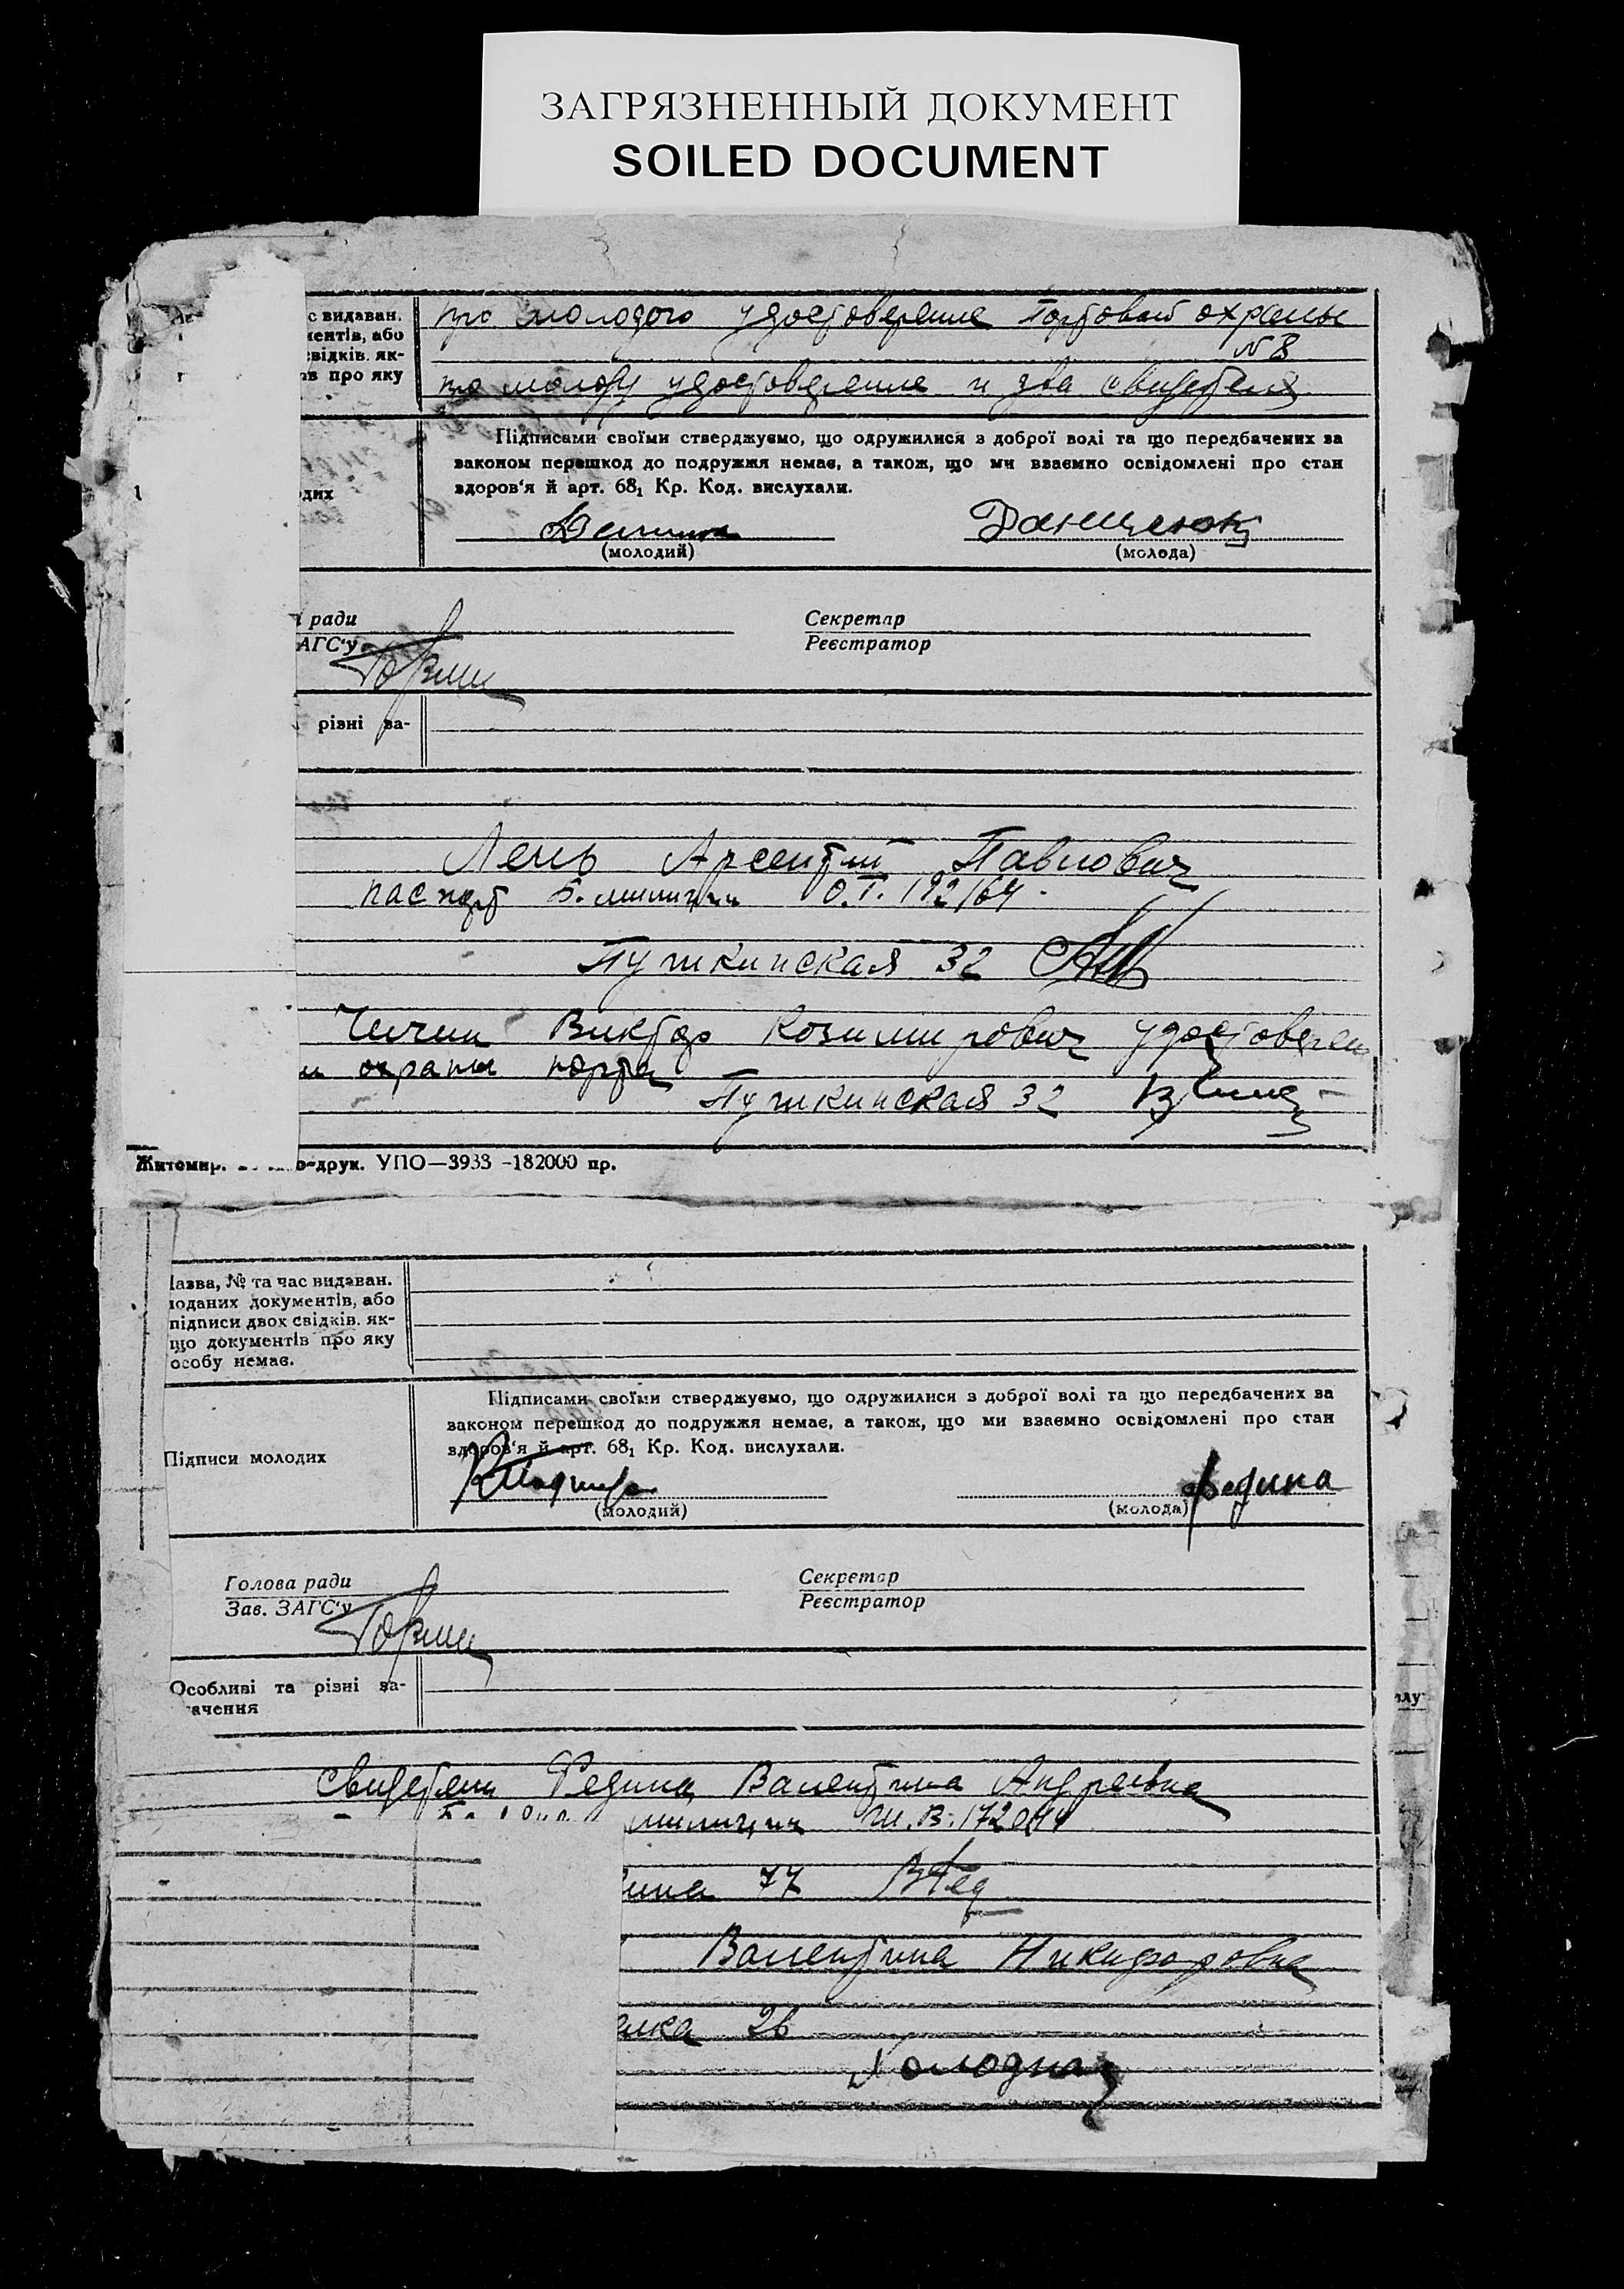 ЗАГРЯЗНЕННЫЙ ДОКУМЕНТ
SOILED DOCUMENT
с видаван.
ментів, або
свідків. як-
ів про яку
про молодого удостоверение портовой охраны
N 8
про молоду удостоверение и два свидетеля
Підписами своїми стверджуємо, що одружилися з доброї волі та що передбачених за
законом перешкод до подружжя немає, а також, що ми взаємно освідомлені про стан
здоров'я й арт. 68₁ Кр. Код. вислухали.
одих
(молодий)
(молода)
ради
АГС'у
Секретар
Реєстратор
різні за-
Лень Арсентий Павлович
паспорт Б. милиции О.Т. 192164
Пушкинская 32
Виктор Козимирович удостоверен
охраны порта
Пушкинская 32
Житомир. о-друк. УПО—3933 -182000 пр.
Назва, № та час видаван.
поданих документів, або
підписи двох свідків. як-
що документів про яку
особу немає.
Підписами своїми стверджуємо, що одружилися з доброї волі та що передбачених за
законом перешкод до подружжя немає, а також, що ми взаємно освідомлені про стан
здоров'я й арт. 68₁ Кр. Код. вислухали.
Підписи молодих
Федина
(молодий)
(молода)
Голова ради
Зав. ЗАГС'у
Секретар
Реєстратор
Особливі та різні за-
ачення
свидетели Федина Валентина Андреевна
милиции Ш.В. 172044
ина 77 ВФед
Валентина Никифоровна
лка 26
Холодная